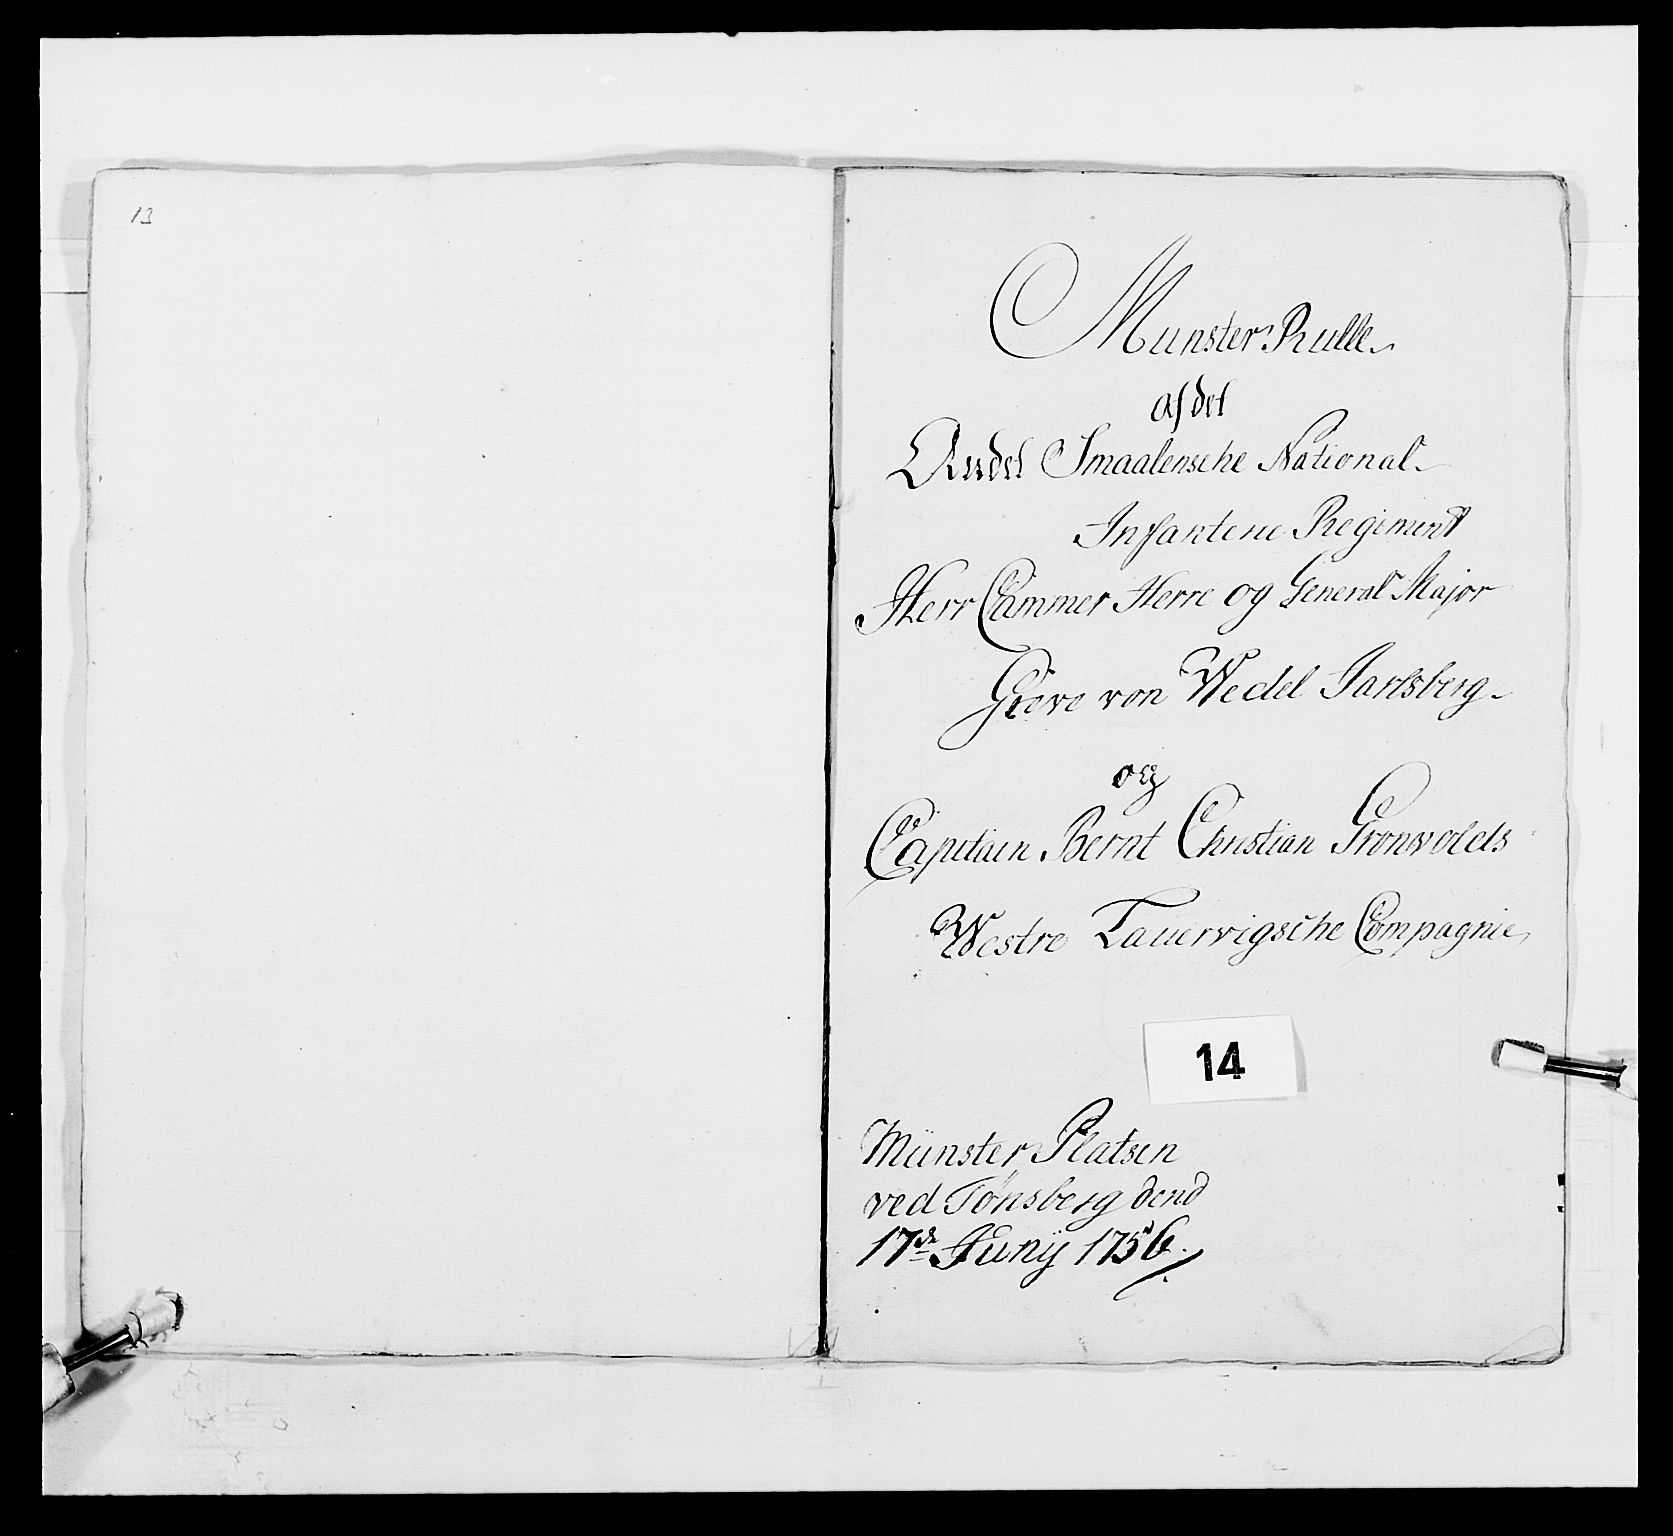 13
Munster Rulle
af det
Andet Smaalensche National
Infanterie Regiment
Herr Cammer Herre og General Major
Greve von Wedel Jarlsberg
og
Capitain Bernt Christian Grønvolds
Westre Laurvigsche Compagnie
14
Münster Platsen
ved Tønsberg dend
17de Junÿ 1756